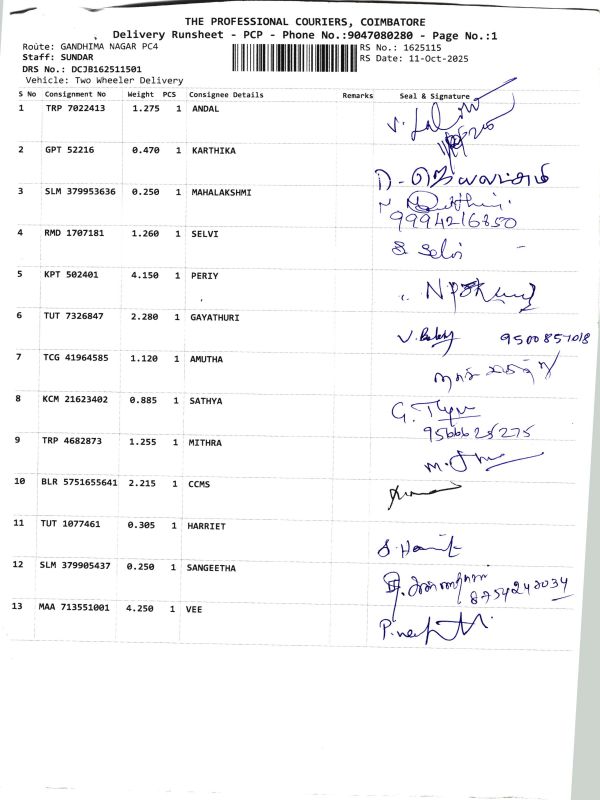 THE PROFESSIONAL COURIERS, COIMBATORE
Delivery Runsheet - PCP - Phone No.:9047080280 - Page No.:1
Route: GANDHIMA NAGAR PC4 RS No.: 1625115
Staff: SUNDAR RS Date: 11-Oct-2025
DRS No.: DCJB162511501
Vehicle: Two Wheeler Delivery
S No Consignment No Weight PCS Consignee Details Remarks Seal & Signature
1 TRP 7022413 1.275 1 ANDAL
2 GPT 52216 0.470 1 KARTHIKA
3 SLM 379953636 0.250 1 MAHALAKSHMI
9994216850
4 RMD 1707181 1.260 1 SELVI S. Selvi
5 KPT 502401 4.150 1 PERIY
6 TUT 7326847 2.280 1 GAYATHURI
V. Baby 9500857018
7 TCG 41964585 1.120 1 AMUTHA
8 KCM 21623402 0.885 1 SATHYA
9566625275
9 TRP 4682873 1.255 1 MITHRA
10 BLR 5751655641 2.215 1 CCMS
11 TUT 1077461 0.305 1 HARRIET
12 SLM 379905437 0.250 1 SANGEETHA
8754243034
13 MAA 713551001 4.250 1 VEE